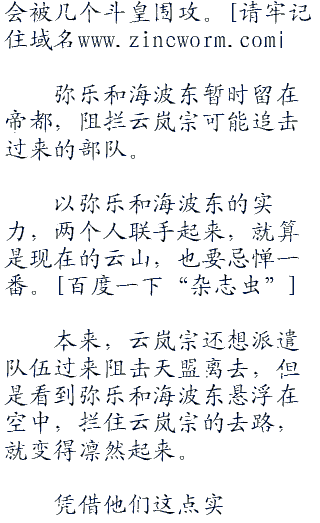 会被几个斗皇围攻。[请牢记
住域名www.zincworm.com|
弥乐和海波东暂时留在
帝都，阻拦云岚宗可能追击
过来的部队。
以弥乐和海波东的实
力，两个人联手起来，就算
是现在的云山，也要忌惮一
番。[百度一下“杂志虫”]
本来，云岚宗还想派遣
队伍过来阻击天盟离去，但
是看到弥乐和海波东悬浮在
空中，拦住云岚宗的去路，
就变得凛然起来。
凭借他们这点实